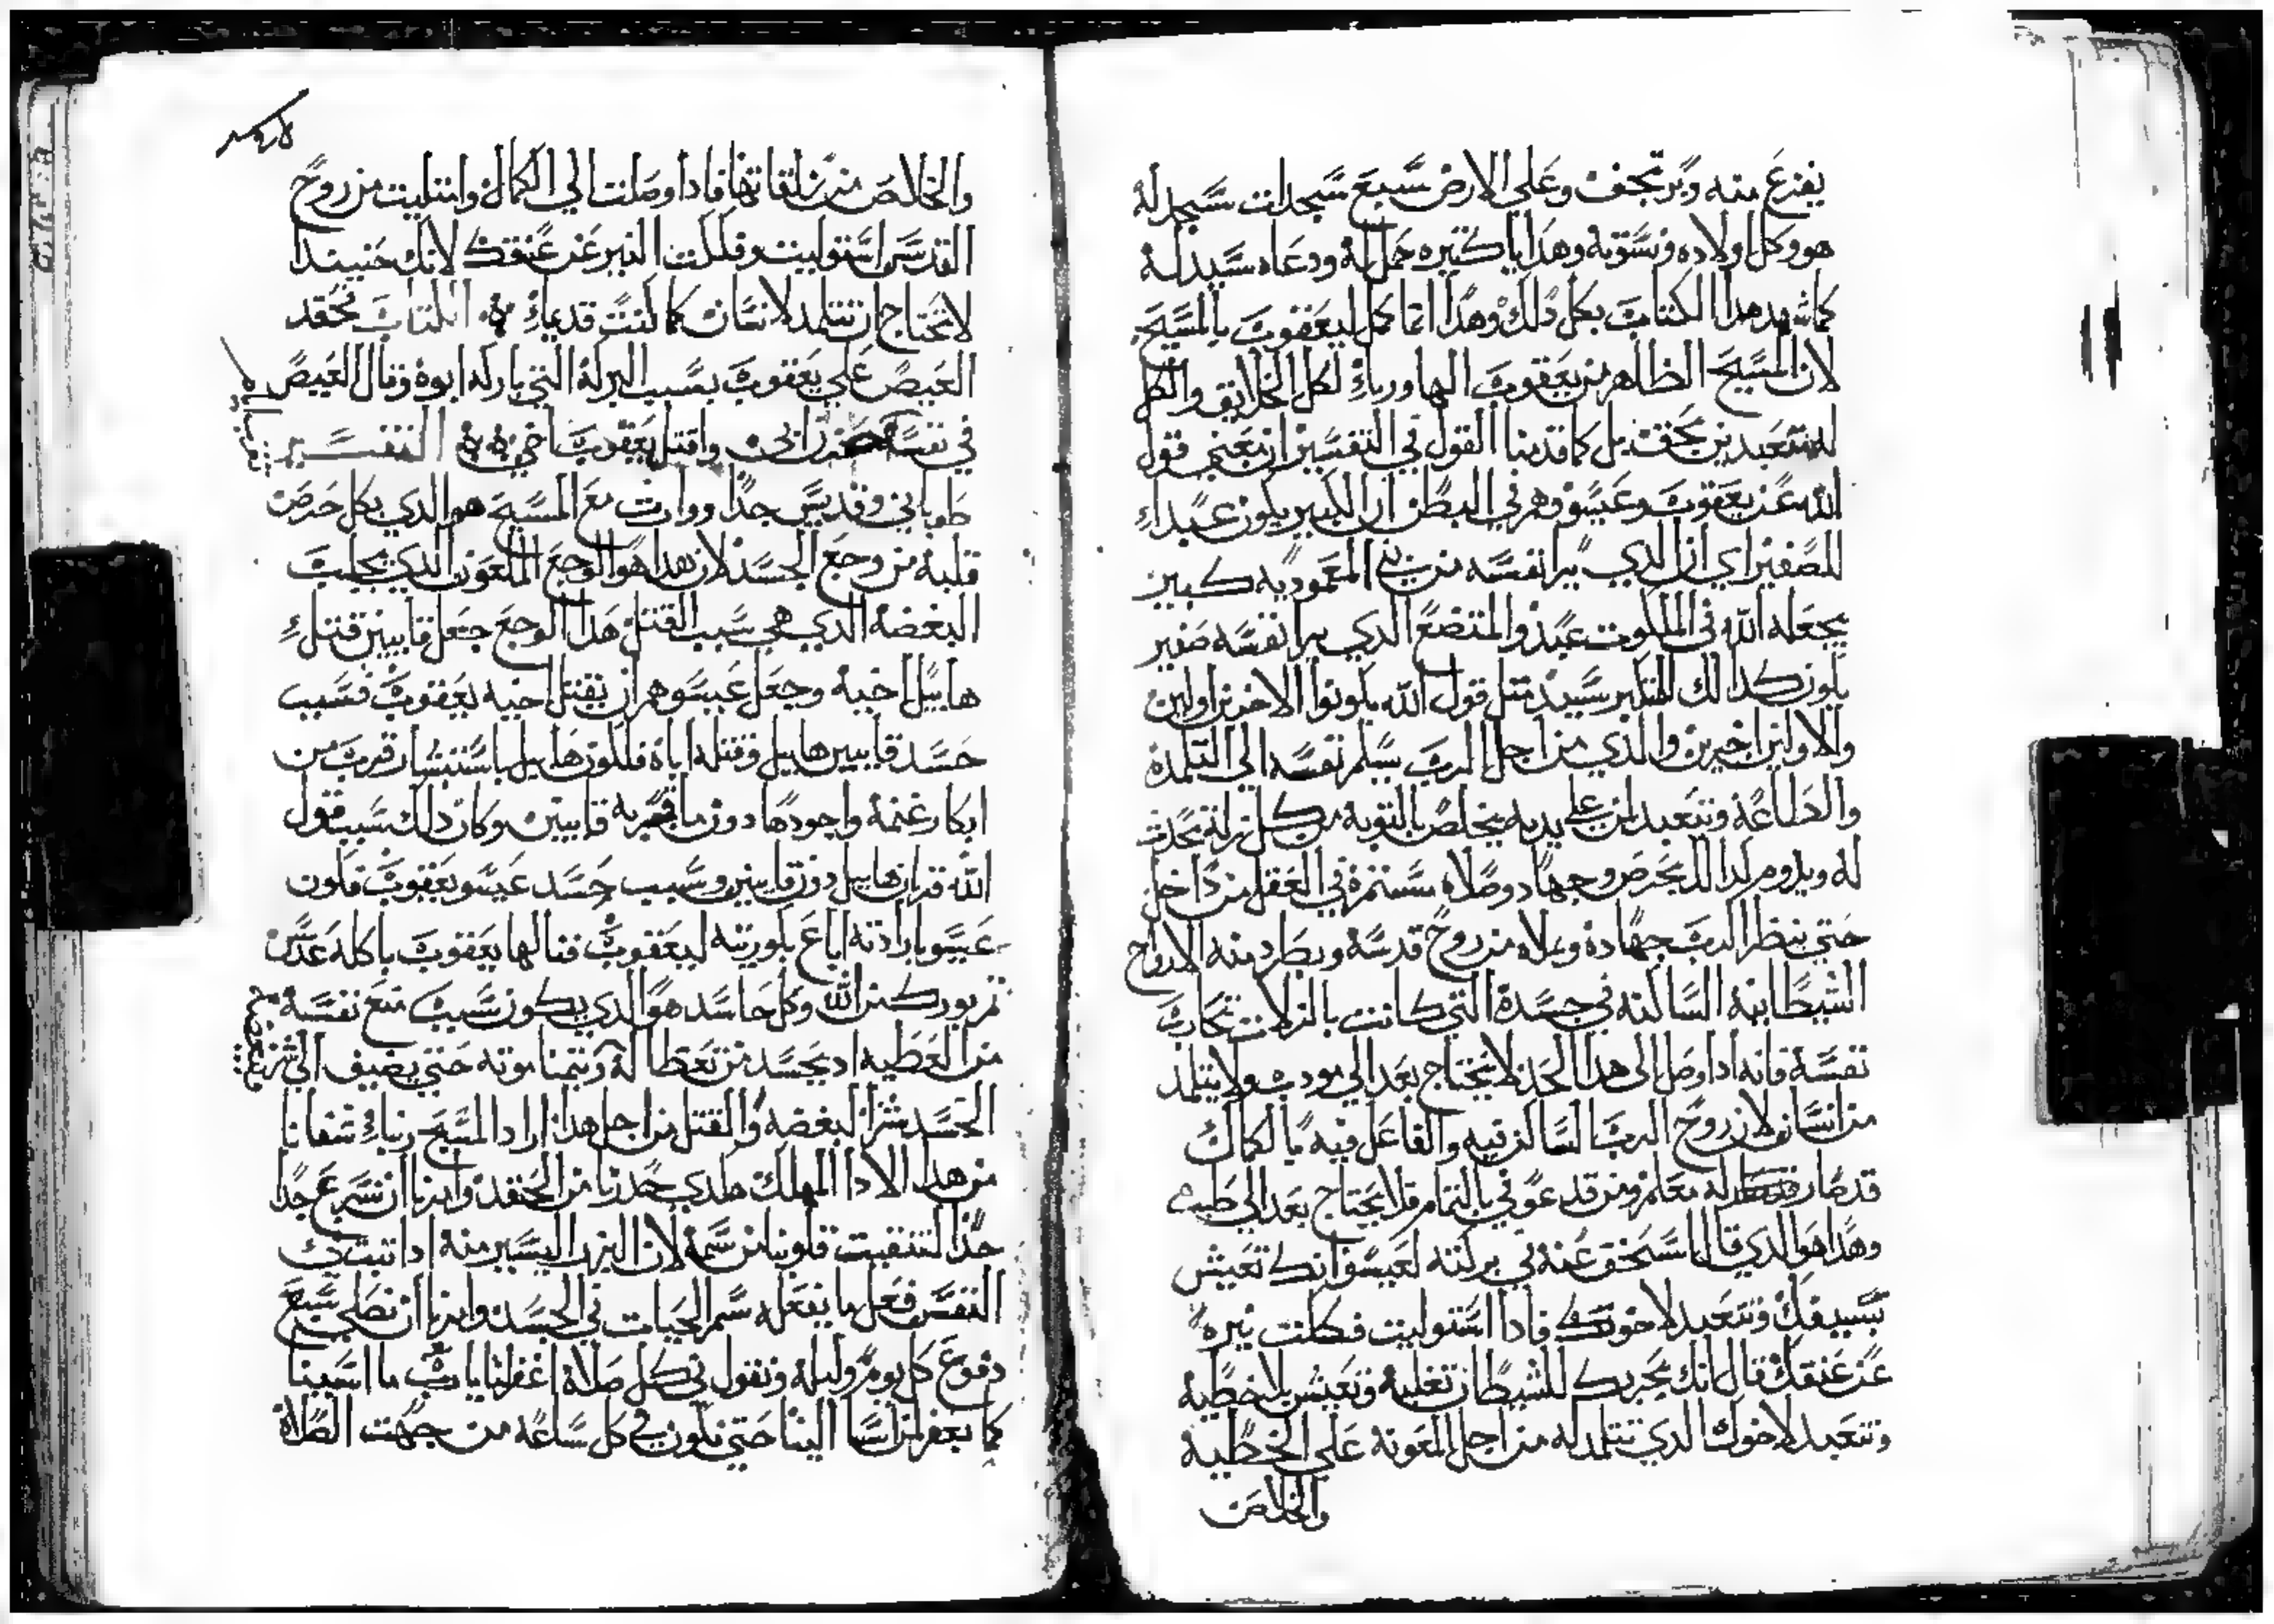 يفزع منه ويرتجف وعلى الارض سبع سجدات سجد له
هو وكل اولاده ونسوته وهدايا كتيره حمل له ودعاه سيد له
كما شهد هدا الكتاب بكل دلك وهدا انما كمل ليعقوب بالمسيح
لان المسيح الظاهر من يعقوب الها وربا لكل الخلايق والكل
له متعبدين بحق بل كما قدمنا القول في التفسير ان نعني قول
الله عن يعقوب وعيسو وهم في البطن ان الكبير يكون عبدا
للصغير اي ان الدي يرا نفسه من بني المعموديه كبير
يجعله الله في الملكوت عبد والمتضع الدي يرا نفسه صغير
يكون كدالك للمتكبر سيد متل قول الله يكونوا الاخرين اولين
والاولين اخيرين والدي من اجل الرب يسلم نفسه الي التلمدة
والطاعة ويتعبد لمن علي يديه يخلص بالتوبه من كل زلة تحدث
له ويدوم كدا الدي يحرص وجهاد وصلاه مستمرة في العقل من داخل
حتي ينظر الرب جهاده ويملاه من روح قدسه ويطرد منه الارواح
الشيطانية الساكنه في جسدة التي كانت بالزلات تحارب
نفسة فانه ادا وصل الى هدا الحد لا يحتاج بعد الي مودب ولا يتلمد
من انسان لان روح الرب الساكن فيه والفاعل فيه بالكمال
قد صار له معلم ومن قد عوفي بالتمام فلا يحتاج بعد الي طبيب
وهدا هو الدي قال اسحق عنه في بركته لعيسو انك تعيش
بسيفك وتتعبد لاخوتك فادا استوليت فككت نيره
عن عنقك قال انك بحربك للشيطان تغلبه وتعيش بلا خطيه
وتتعبد لاخوك الدي تتلمد له من اجل المعونه على الخطيه
والخلاص
والخلاص من زلقاتها فادا وصلت الي الكمال وامتليت من روح
القدس استوليت وفككت النير عن عنقك لانك حينيدا
لا تحتاج ان تتلمد لانسان كما كنت قديما الكتاب فحقد
العيص علي يعقوب بسبب البركة التي باركه ابوه وقال العيص
في نفسه حزن ابي واقتل يعقوب اخي التفسير
طوباني وقديس جدا ووارت مع المسيح هو الدي بكل حرص
قلبه من وجع الجسد لان هدا هو الوجع الملعون الدي يجلب
البغضه الدي هي سبب القتل هدا الوجع جعل قايين قتل
هابيل اخيه وجعل عيسو هم ان يقتل اخيه يعقوب فسبب
حسد قايين هابيل وقتله اياه فلكون هابيل باستبشار قرب من
ابكار غنمة واجودها دون ما قربه قايين وكان دالك سبب قبول
الله قربان هابيل دون قايين وسبب حسد عيسو يعقوب فلكون
عيسو بارادته اباع بكوريته ليعقوب فنالها يعقوب باكله عدس
تم بورك من الله وكل حاسد هو الدي يكون سبب منع نفسه
من العطيه اد يحسد من تعطا له ويتمنا موته حتي يضيف الي شر
الحسد شر البغضه والقتل من اجل هدا اراد المسيح ربنا شفانا
من هدا الادا المهلك الدي حدرنا من الحقد وامرنا ان نسرع جدا
جدا لتنقيت قلوبنا من سمه لان النزر اليسير منه ادا تبت في
النفس فعل ما يفعله سم الحيات في الجسد وامرنا ان نصلي سبع
دفوع كل يوم وليله ونقول في كل صلاة اغفر لنا يا رب ما اسينا
كما نغفر لمن اسا الينا حتي نكون في كل ساعه من جهت الصلاة